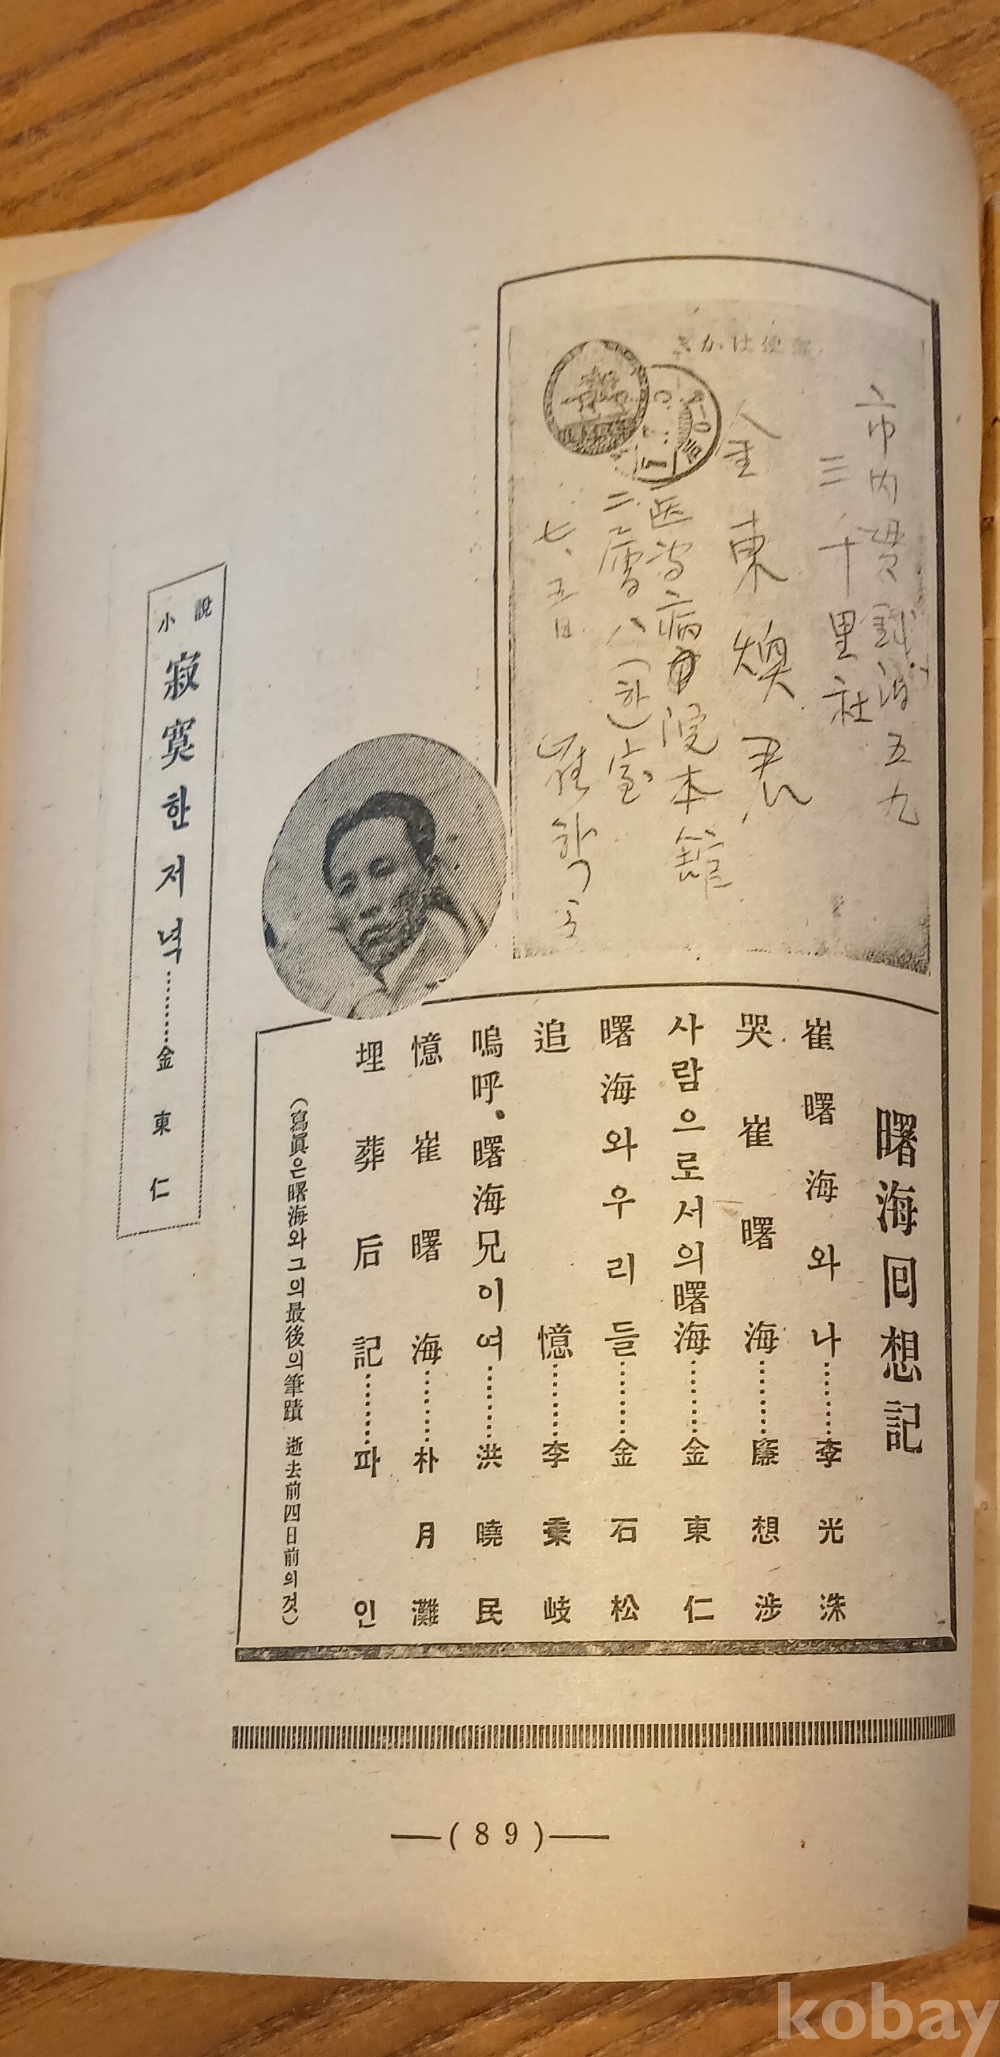 郵便はかき
市内貫鉄洞五九
三千里社
金東煥君
医専病院本館
二層八(하)室
七、五日 崔학송
曙海回想記
崔曙海와나………李光洙
哭崔曙海………廉想涉
사람으로서의曙海………金東仁
曙海와우리들………金石松
追憶………李秉岐
嗚呼、曙海兄이여………洪曉民
憶崔曙海………朴月灘
埋葬后記………파인
(寫眞은曙海와그의最後의筆蹟 逝去前四日前의것)
小說
寂寞한저녁………金東仁
—(89)—
kobay